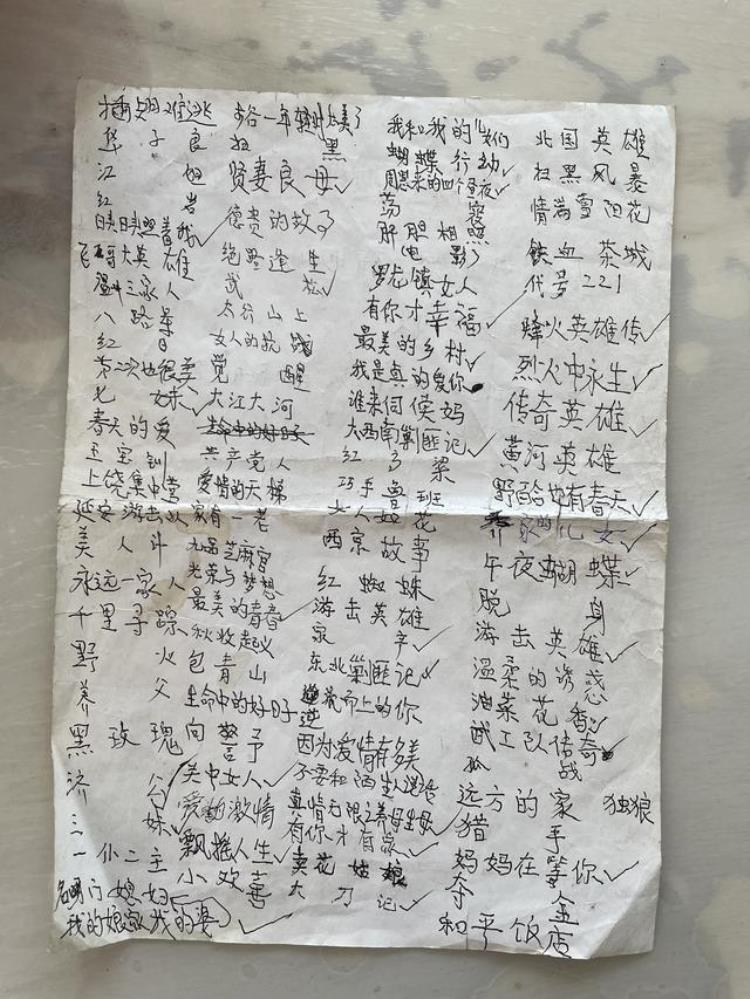 插翅难逃
华子良
江姐
红岩
日月盟着我
飞哥大英雄
温州三家人
八路军
红日
第二次也很美
七妹
春天的爱
五宝钏
上饶集中营
延安游击队
美人斗
永远一家人
千里寻踪
野火
养父
黑玫瑰
济公
三妹
一仆二主
名门媳妇
我的娘家我的婆
扫黑
贤妻良母
德贵的故事
绝路逢生
武松
太行山上
女人的抗战
觉醒
大江大河
生命中的好日子
共产党人
爱情的天梯
家有一老
九品芝麻官
光荣与梦想
最美的青春
秋收起义
包青山
生命中的好日子
向警予
关中女人
爱的激情
飘摇人生
小欢喜
我和我的他们
蝴蝶行动
周恩来的四个昼夜
荡寇
肝胆相照
电影
罗龙镇女人
有你才幸福
最美的乡村
我是真的爱你
谁来伺候妈
大西南剿匪记
红高粱
巧手鲁班
女人如花
西京故事
红蜘蛛
游击英雄
家辛
东北剿匪记
逆流而上的你
因为爱情有多美
不要和陌生人说话
真情无限之养母生母
有你才有家
卖花姑娘
大刀记
北国英雄
扫黑风暴
情满雪阳花
铁血茶城
代号221
烽火英雄传
烈火中永生
传奇英雄
黄河英雄
野百合也有春天
乔家的儿女
午夜蝴蝶
脱身
游击英雄
温柔的诱惑
油菜花香
武工队传奇
孤战
远方的家 独狼
猎手
妈妈在等你
夺金
和平饭店